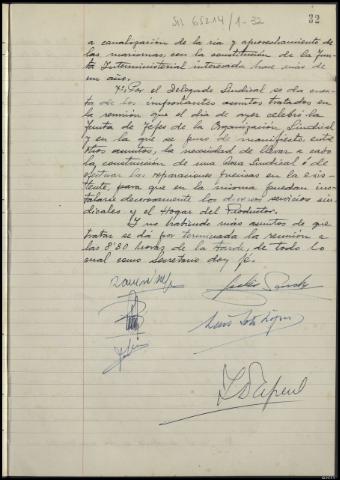 Sig 65214/1-32
32
a canalización de la ría y aprovechamiento de
las marismas, con la constitución de la Jun-
ta Interministerial interesada hace más de
un año.
7º Por el Delegado Sindical se da cuen-
ta de los importantes asuntos tratados en
la reunión que el día de ayer celebró la
Junta de Jefes de la Organización Sindical
y en la que se puso de manifiesto, entre
otros asuntos, la necesidad de llevar a cabo
la construcción de una Casa Sindical ó de
efectuar las reparaciones precisas en la exis-
tente, para que en la misma puedan ins-
talarse decorosamente los diversos servicios sin-
dicales y el Hogar del Productor.
Y no habiendo más asuntos de que
tratar se dá por terminada la reunión a
las 8'30 horas de la tarde, de todo lo
cual como Secretario doy fé.